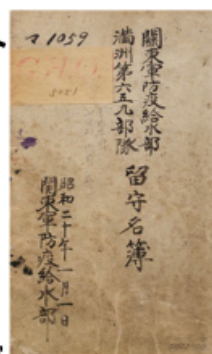 ﾏ 1059
關東軍防疫給水部
満洲第六五九部隊
留守名簿
昭和二十年一月一日
關東軍防疫給水部